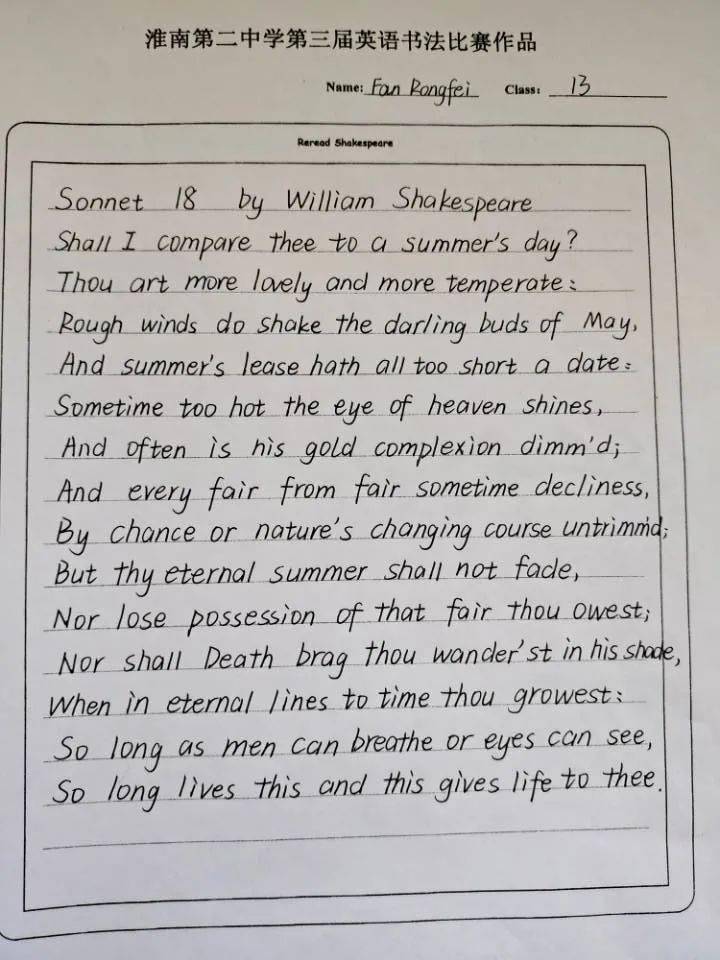 淮南第二中学第三届英语书法比赛作品
Name: Fan Rongfei Class: 13
Reread Shakespeare
Sonnet 18 by William Shakespeare
Shall I compare thee to a summer's day?
Thou art more lovely and more temperate:
Rough winds do shake the darling buds of May,
And summer's lease hath all too short a date:
Sometime too hot the eye of heaven shines,
And often is his gold complexion dimm'd;
And every fair from fair sometime decliness,
By chance or nature's changing course untrimm'd;
But thy eternal summer shall not fade,
Nor lose possession of that fair thou owest;
Nor shall Death brag thou wander'st in his shade,
When in eternal lines to time thou growest:
So long as men can breathe or eyes can see,
So long lives this and this gives life to thee.